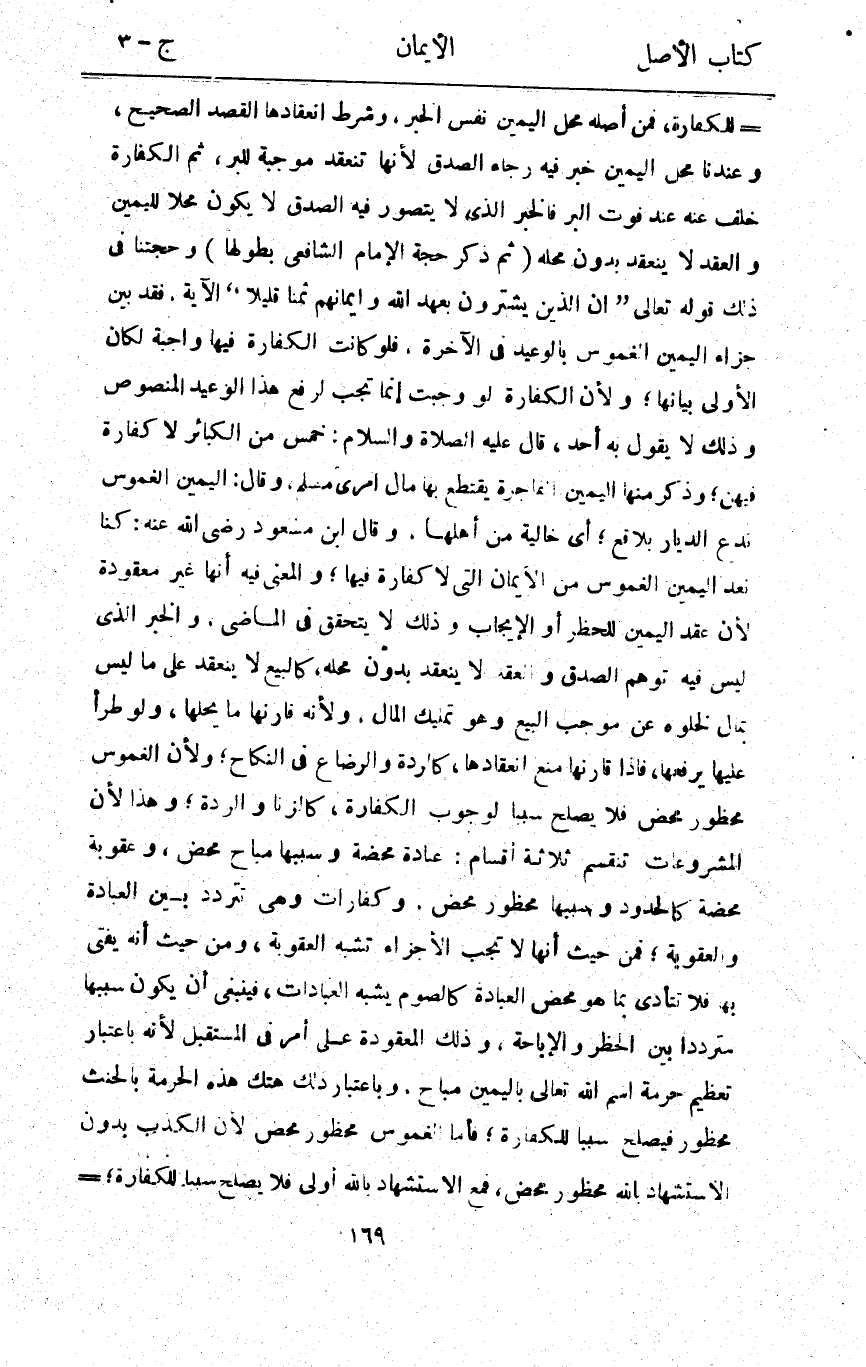 كتاب الأصل الأيمان ج - ٣
= للكفارة، فمن أصله محل اليمين نفس الخبر، وشرط انعقادها القصد الصحيح،
و عندنا محل اليمين خبر فيه رجاء الصدق لأنها تنعقد موجبة للبر، ثم الكفارة
خلف عنه عند فوت البر فالخبر الذى لا يتصور فيه الصدق لا يكون محلا لليمين
و العقد لا ينعقد بدون محله ( ثم ذكر حجة الإمام الشافعى بطولها ) و حجتنا فى
ذلك قوله تعالى ” ان الذين يشترون بعهد الله و ايمانهم ثمنا قليلا “ الآية. فقد بين
جزاء اليمين الغموس بالوعيد فى الآخرة. فلو كانت الكفارة فيها واجبة لكان
الأولى بيانها؛ و لأن الكفارة لو وجبت إنما تجب لرفع هذا الوعيد المنصوص
و ذلك لا يقول به أحد، قال عليه الصلاة و السلام: خمس من الكبائر لا كفارة
فيهن؛ وذكر منها اليمين الفاجرة يقتطع بها مال امرئ مسلم. و قال: اليمين الغموس
تدع الديار بلاقع؛ أى خالية من أهلها. و قال ابن مسعود رضى الله عنه: كنا
نعد اليمين الغموس من الأيمان التى لا كفارة فيها؛ و المعنى فيه أنها غير معقودة
لأن عقد اليمين للحظر أو الإيجاب و ذلك لا يتحقق فى الماضى. و الخبر الذى
ليس فيه توهم الصدق و العقد لا ينعقد بدون محله، كالبيع لا ينعقد على ما ليس
بمال لخلوه عن موجب البيع وهو تمليك المال. ولأنه قارنها ما يحلها، ولو طرأ
عليها يرفعها، فاذا قارنها منع انعقادها، كالردة و الرضاع فى النكاح؛ ولأن الغموس
محظور محض فلا يصلح سببا لوجوب الكفارة، كالزنا و الردة؛ و هذا لأن
المشروعات تنقسم ثلاثة أقسام: عبادة محضة و سببها مباح محض، و عقوبة
محضة كالحدود و سببها محظور محض. و كفارات وهى تتردد بين العبادة
والعقوبة؛ فمن حيث أنها لا تجب الأجزاء تشبه العقوبة، ومن حيث أنه يفتى
بها فلا تتأدى بما هو محض العبادة كالصوم يشبه العبادات، فينبغى أن يكون سببها
مترددا بين الحظر و الإباحة، و ذلك المعقودة على أمر فى المستقبل لأنه باعتبار
تعظيم حرمة اسم الله تعالى باليمين مباح. و باعتبار ذلك هتك هذه الحرمة بالحنث
محظور فيصلح سببا للكفارة؛ فأما الغموس محظور محض لأن الكذب بدون
الاستشهاد بالله محظور محض، فمع الاستشهاد بالله أولى فلا يصلح سببا للكفارة؛ =
١٦٩